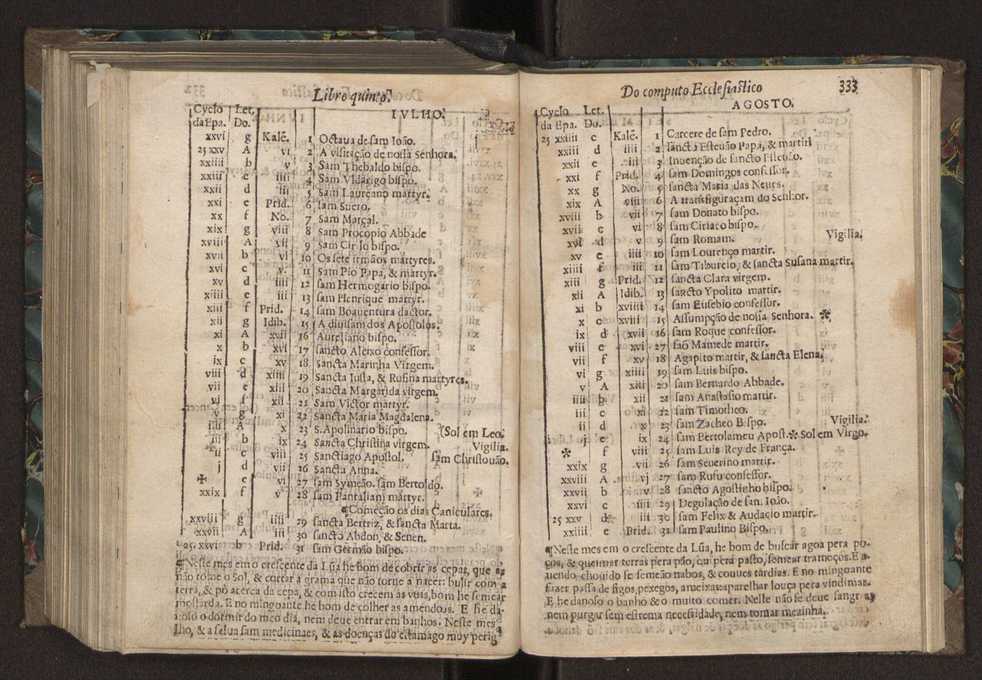 Libro quinto.
Cyclo Let. IVLHO.
da Epa. Do.
xxvi g Kalẽ. 1 Octaua de sam Ioão.
25 xxv A vi 2 A visitação de nossa Senhora.
xxiiii b v 3 Sam Thebaldo bispo.
xxiii c iiii 4 Sam Vldarigo bispo.
xxii d iii 5 Sam Laureano martyr.
xxi e Prid. 6 sam Suero.
xx f No. 7 Sam Marçal.
xix g viii 8 Sam Procopio Abbade
xviii A vii 9 Sam Cirilo bispo.
xvii b vi 10 Os sete irmãos martyres.
xvi c v. 11 Sam Pio Papa, & martyr.
xv d iiii 12 sam Hermogario bispo.
xiiii e iii 13 sam Henrique martyr.
xiii f Prid. 14 sam Boauentura doctor.
xii g Idib. 15 A diuisam dos Apostolos.
xi A xvii 16 Aureliano bispo.
x b xvi 17 sancto Aleixo confessor.
ix c xv 18 sancta Marinha Virgem.
viii d xiiii 19 Sancta Iusta, & Rufina martyres.
vii e xiii 20 Sancta Margarida virgem.
vi f xii 21 Sam Victor martyr.
v g xi 22 sancta Maria Magdalena.
iiii A x 23 S. Apolinario bispo. (Sol em Leo.
iii b ix 24 Sancta Christina virgem. Vigilia.
ii c viii 25 Sanctiago Apostol. sam Christouão.
j d vii 26 Sancta Anna.
✠ e vi 27 sam Symeão. sam Bertoldo.
xxix f v 28 sam Pantaliam martyr.
¶Começão os dias Caniculares.
xxviij g iiii 29 sancta Bertriz, & sancta Marta.
xxvii A iii 30 sancto Abdon, & Senen.
25. xxvi b Prid. 31 sam Germão bispo.
¶Neste mes em o crescente da Lũa he bom de cobrir as cepas, que as
não torne o Sol, & cortar a grama que não torne a nacer: bulir com a
terra, & pò acerca da cepa, & com isto crecem as vuas, bom he semear
mostarda. E no minguante he bom de colher as amendoas. E he da-
noso o dormir do meo dia, nem deue entrar em banhos. Neste mes
lho, & a selua sam medicinaes, & as doenças do estamago muy perig
Do computo Ecclesiastico 333
Cyclo Let. AGOSTO.
da Epa. Do.
25 xxiiii c Kalẽ. 1 Carcere de sam Pedro.
xxiii d iiii 2 sancto Esteuão Papa, & martir
xxii e iii 3 Inuenção de sancto Esteuão.
xxi f Prid. 4 sam Domingos confessor.
xx g No. 5 sancta Maria das Neues.
xix A viii 6 A transfiguraçam do Senhor.
xviii b vii 7 sam Donato bispo.
xvii c vi 8 sam Ciriaco bispo.
xvi d v 9 sam Romam. Vigilia.
xv e iiii 10 sam Lourenço martir.
xiiii f iii 11 sam Tiburcio, & sancta Susana martir.
xiii g Prid. 12 sancta Clara virgem.
xii A Idib. 13 sancto Ypolito martir.
xi b xviiii 14 sam Eusebio confessor.
x c xviii 15 Assumpção de nossa Senhora. ✻
ix d xvii 16 sam Roque confessor.
viii e xvi 27 são Mamede martir.
vii f xv 18 Agapito martir, & sancta Elena.
vi g xiiii 19 sam Luis bispo.
v A xiii 20 sam Bernardo Abbade.
iiii b xii 21 sam Anastasio martir.
iii c xi 22 sam Timotheo.
ii d x 23 sam Zacheo Bispo. Vigilia.
j e ix 24 sam Bertolameu Apost. ✻ Sol em Virgo.
✻ f viii 25 sam Luis Rey de França.
xxix g vii 26 sam Seuerino martir.
xxviii A vj 27 sam Rufu confessor.
xxvii b v 28 sancto Agostinho bispo.
xxvi c iiii 29 Degulação de san. Ioão.
25 xxv d iii 30 sam Felix & Audacio martir.
xxiiii e Prid. 31 sam Paulino Bispo.
¶Neste mes em o crescente da Lũa, he bom de buscar agoa pera po-
ços, & queimar terras pera pão, ou pera pasto, semear tramoços. E a-
uendo chouido se semeão nabos, & couues tardias. E no minguante
fazer passa de figos, pexegos, ameixas, aparelhar louça pera vindimar.
E he danoso o banho & o muito comer. Neste não se deue sangrar,
nem purgar sem estrema necessidade, nem tomar mezinha.